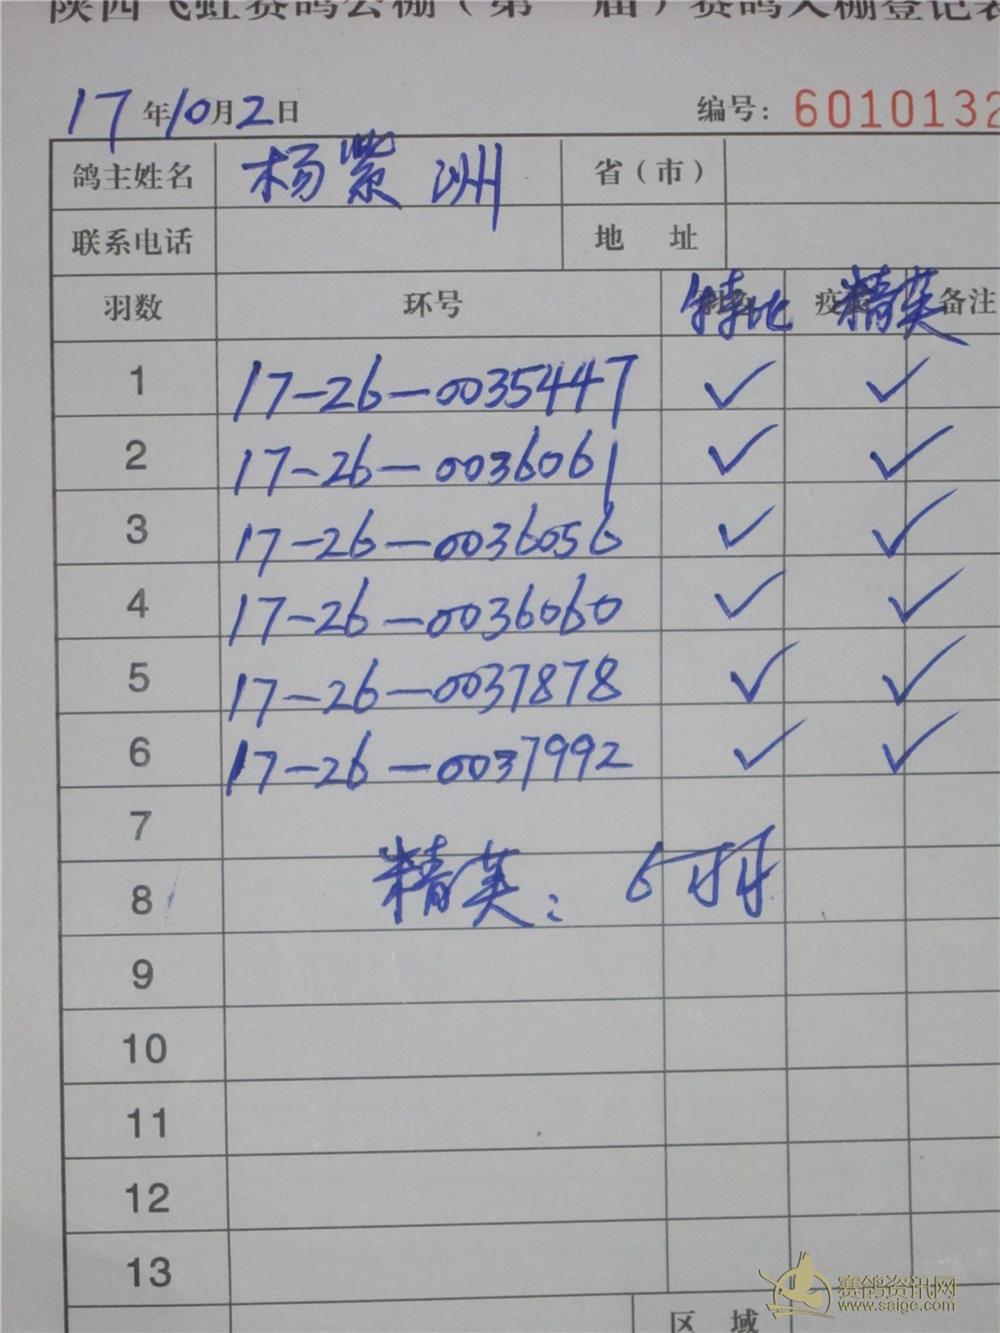 陕西飞虹赛鸽公棚（第 届）赛鸽入棚登记表
17年10月2日 编号：6010132
鸽主姓名 杨紫洲 省（市）
联系电话 地 址
羽数 环号 特比 精英 备注
1 17-26-0035447 ✓ ✓
2 17-26-0036061 ✓ ✓
3 17-26-0036056 ✓ ✓
4 17-26-0036060 ✓ ✓
5 17-26-0037878 ✓ ✓
6 17-26-0037992 ✓ ✓
7
精英：6羽
8
9
10
11
12
13
区 域
赛鸽资讯网
www.saige.com